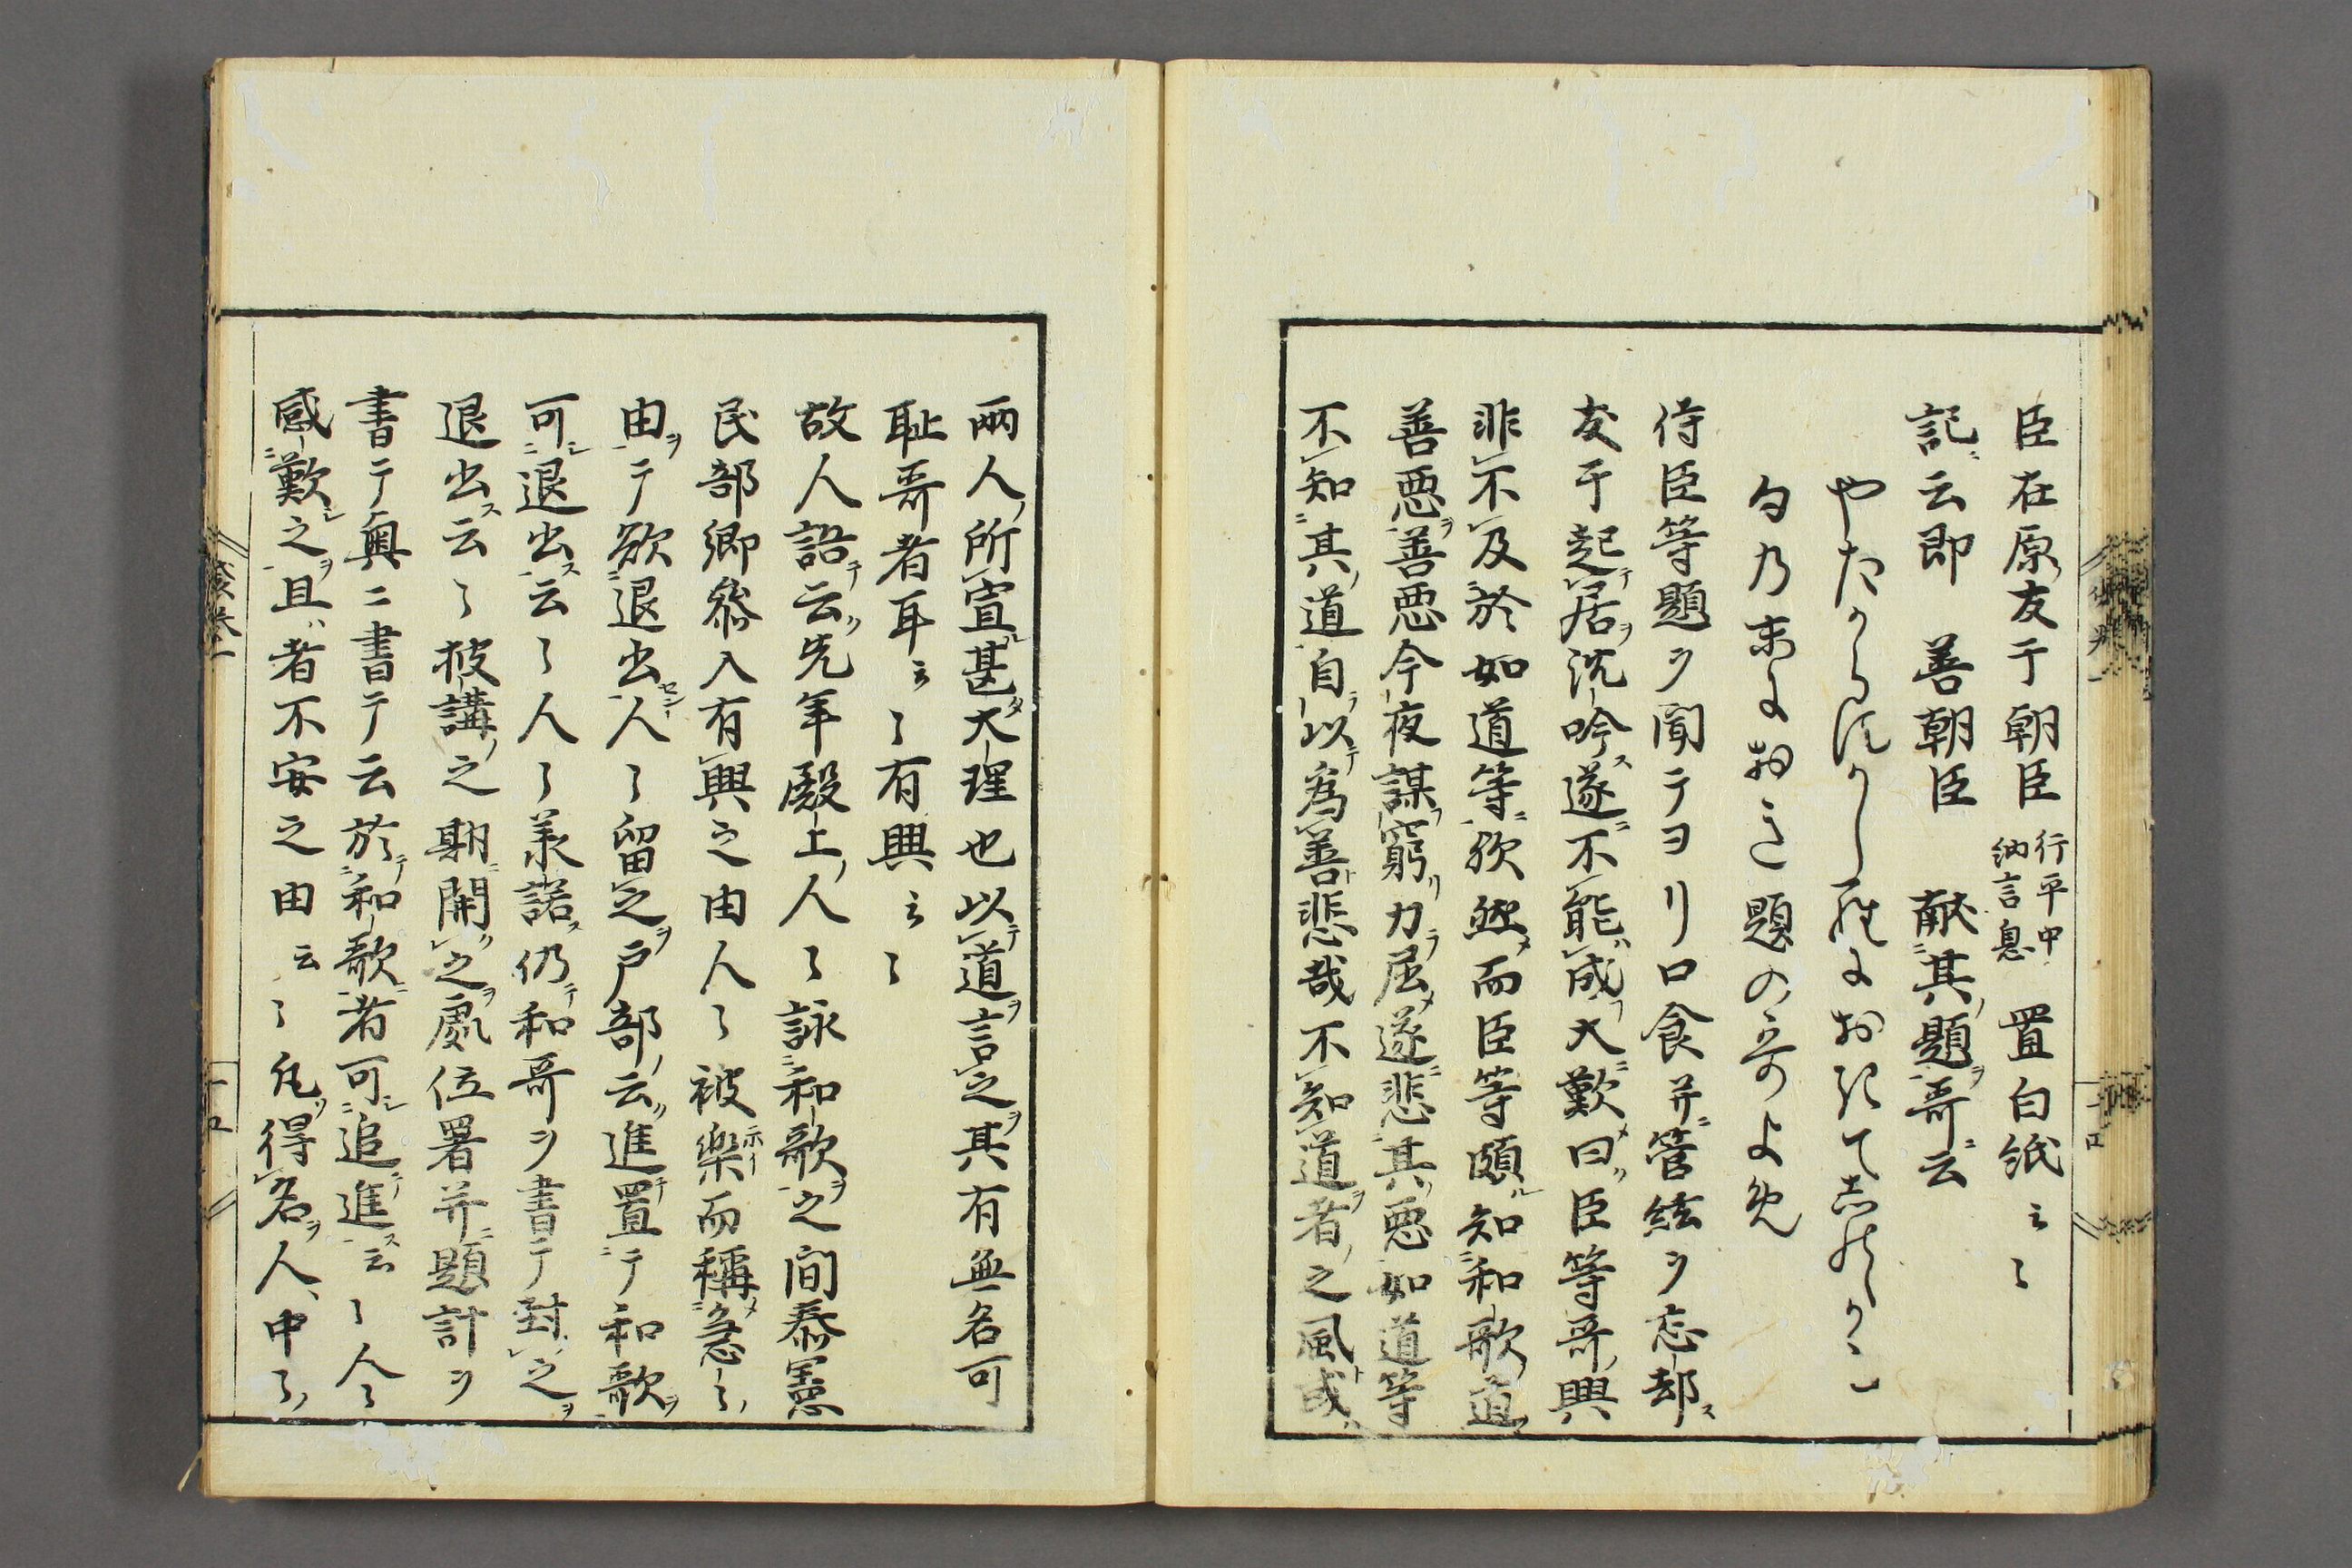 臣在原友于朝臣 行平中納言息 置白紙云々
記云即 善朝臣 献其題哥云
やたかうは
句乃末におきて題の哥よめ
侍臣等題ヲ聞テヨリ口食并管絃ヲ忘却ス
友于起居沈吟ス遂不能成大歎曰臣等哥興
非不及於如道等欲然而臣等頗知和歌道
善悪善悪今夜謀窮力屈遂悲其悪如道等
不知其道自以為善悲哉不知道者之風或
両人所宣甚大理也以道言之其有無名可
耻哥者耳云々有興云々
故人語云先年殿上人々詠和歌之間泰憲
民部卿参入有興之由人々被楽而称急之
由テ欲退出人々留之戸部云進置テ和歌
可退出云々人々承諾仍和哥ヲ書テ封之
退出云々披講之期開之處位署并題計ヲ
書テ奥ニ書テ云於和歌者可追進云々人々
感歎之且者不安之由云々凡得名人中々